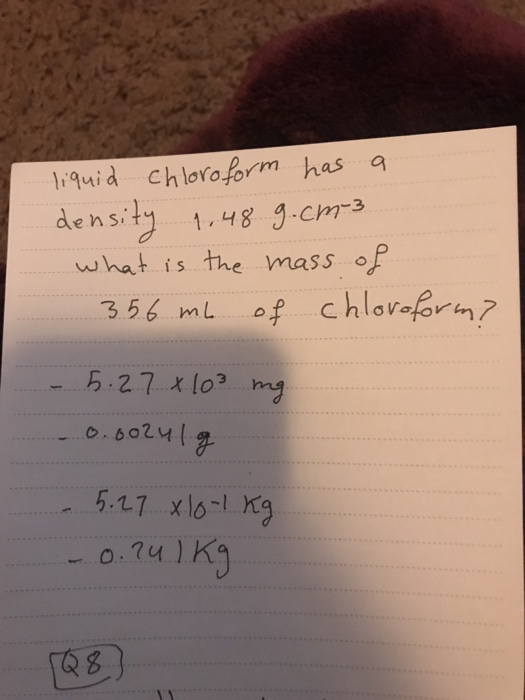 liquid chloroform has a
density 1.48 g.cm-3
what is the mass of
356 mL of chloroform?
- 5.27 x 10³ mg
- 0.00241 g
- 5.27 x10-1 Kg
- 0.241 Kg
Q8